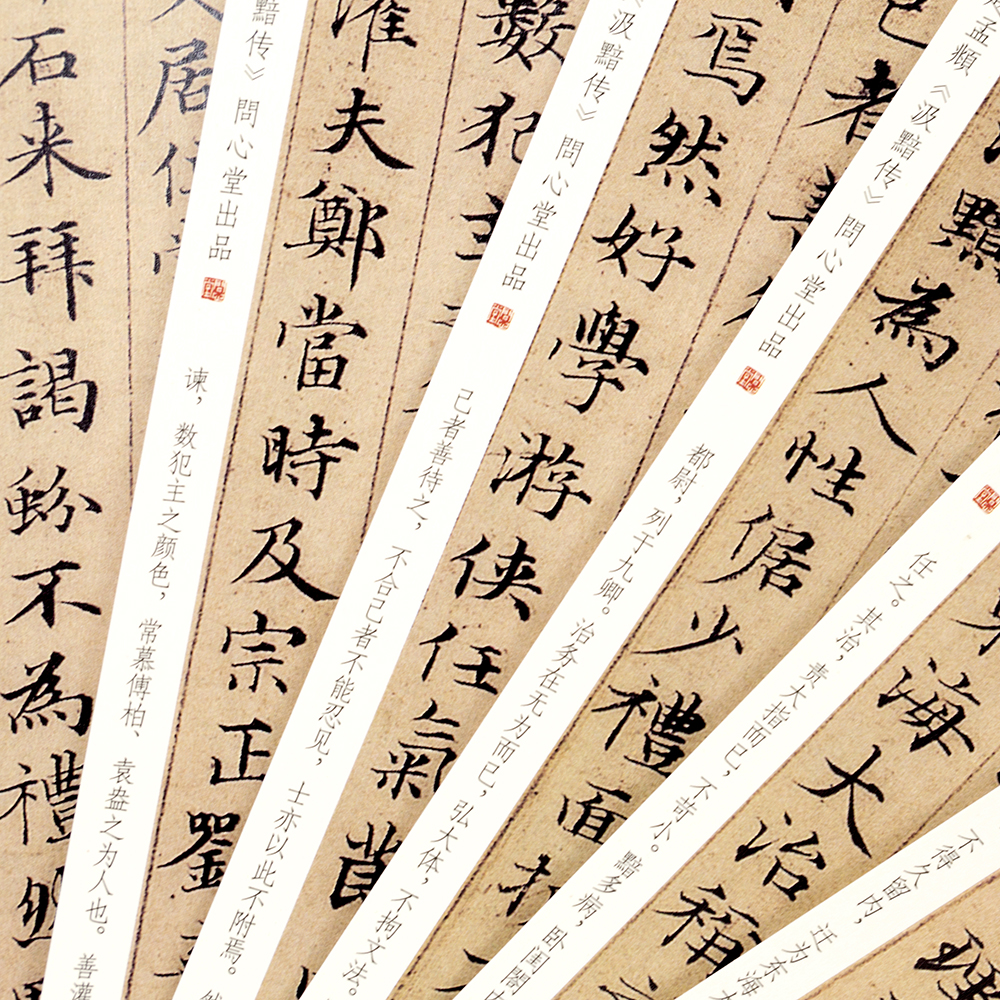 石来拜謁蚡不為禮然
居位
黯传》問心堂出品
谏，数犯主之颜色，常慕傅柏、袁盎之为人也。善灌
夫鄭當時及宗正劉
數犯主
汲黯传》問心堂出品
己者善待之，不合己者不能忍见，士亦以此不附焉。
焉然好學游侠任氣莭
者善
孟頫《汲黯传》問心堂出品
都尉，列于九卿。治务在无为而已，弘大体，不拘文法。
黯為人性倨少禮面折
任之。其治，责大指而已，不苛小。黯多病，卧闺閤内
海大治稱
不得久留内，迁为东海
理